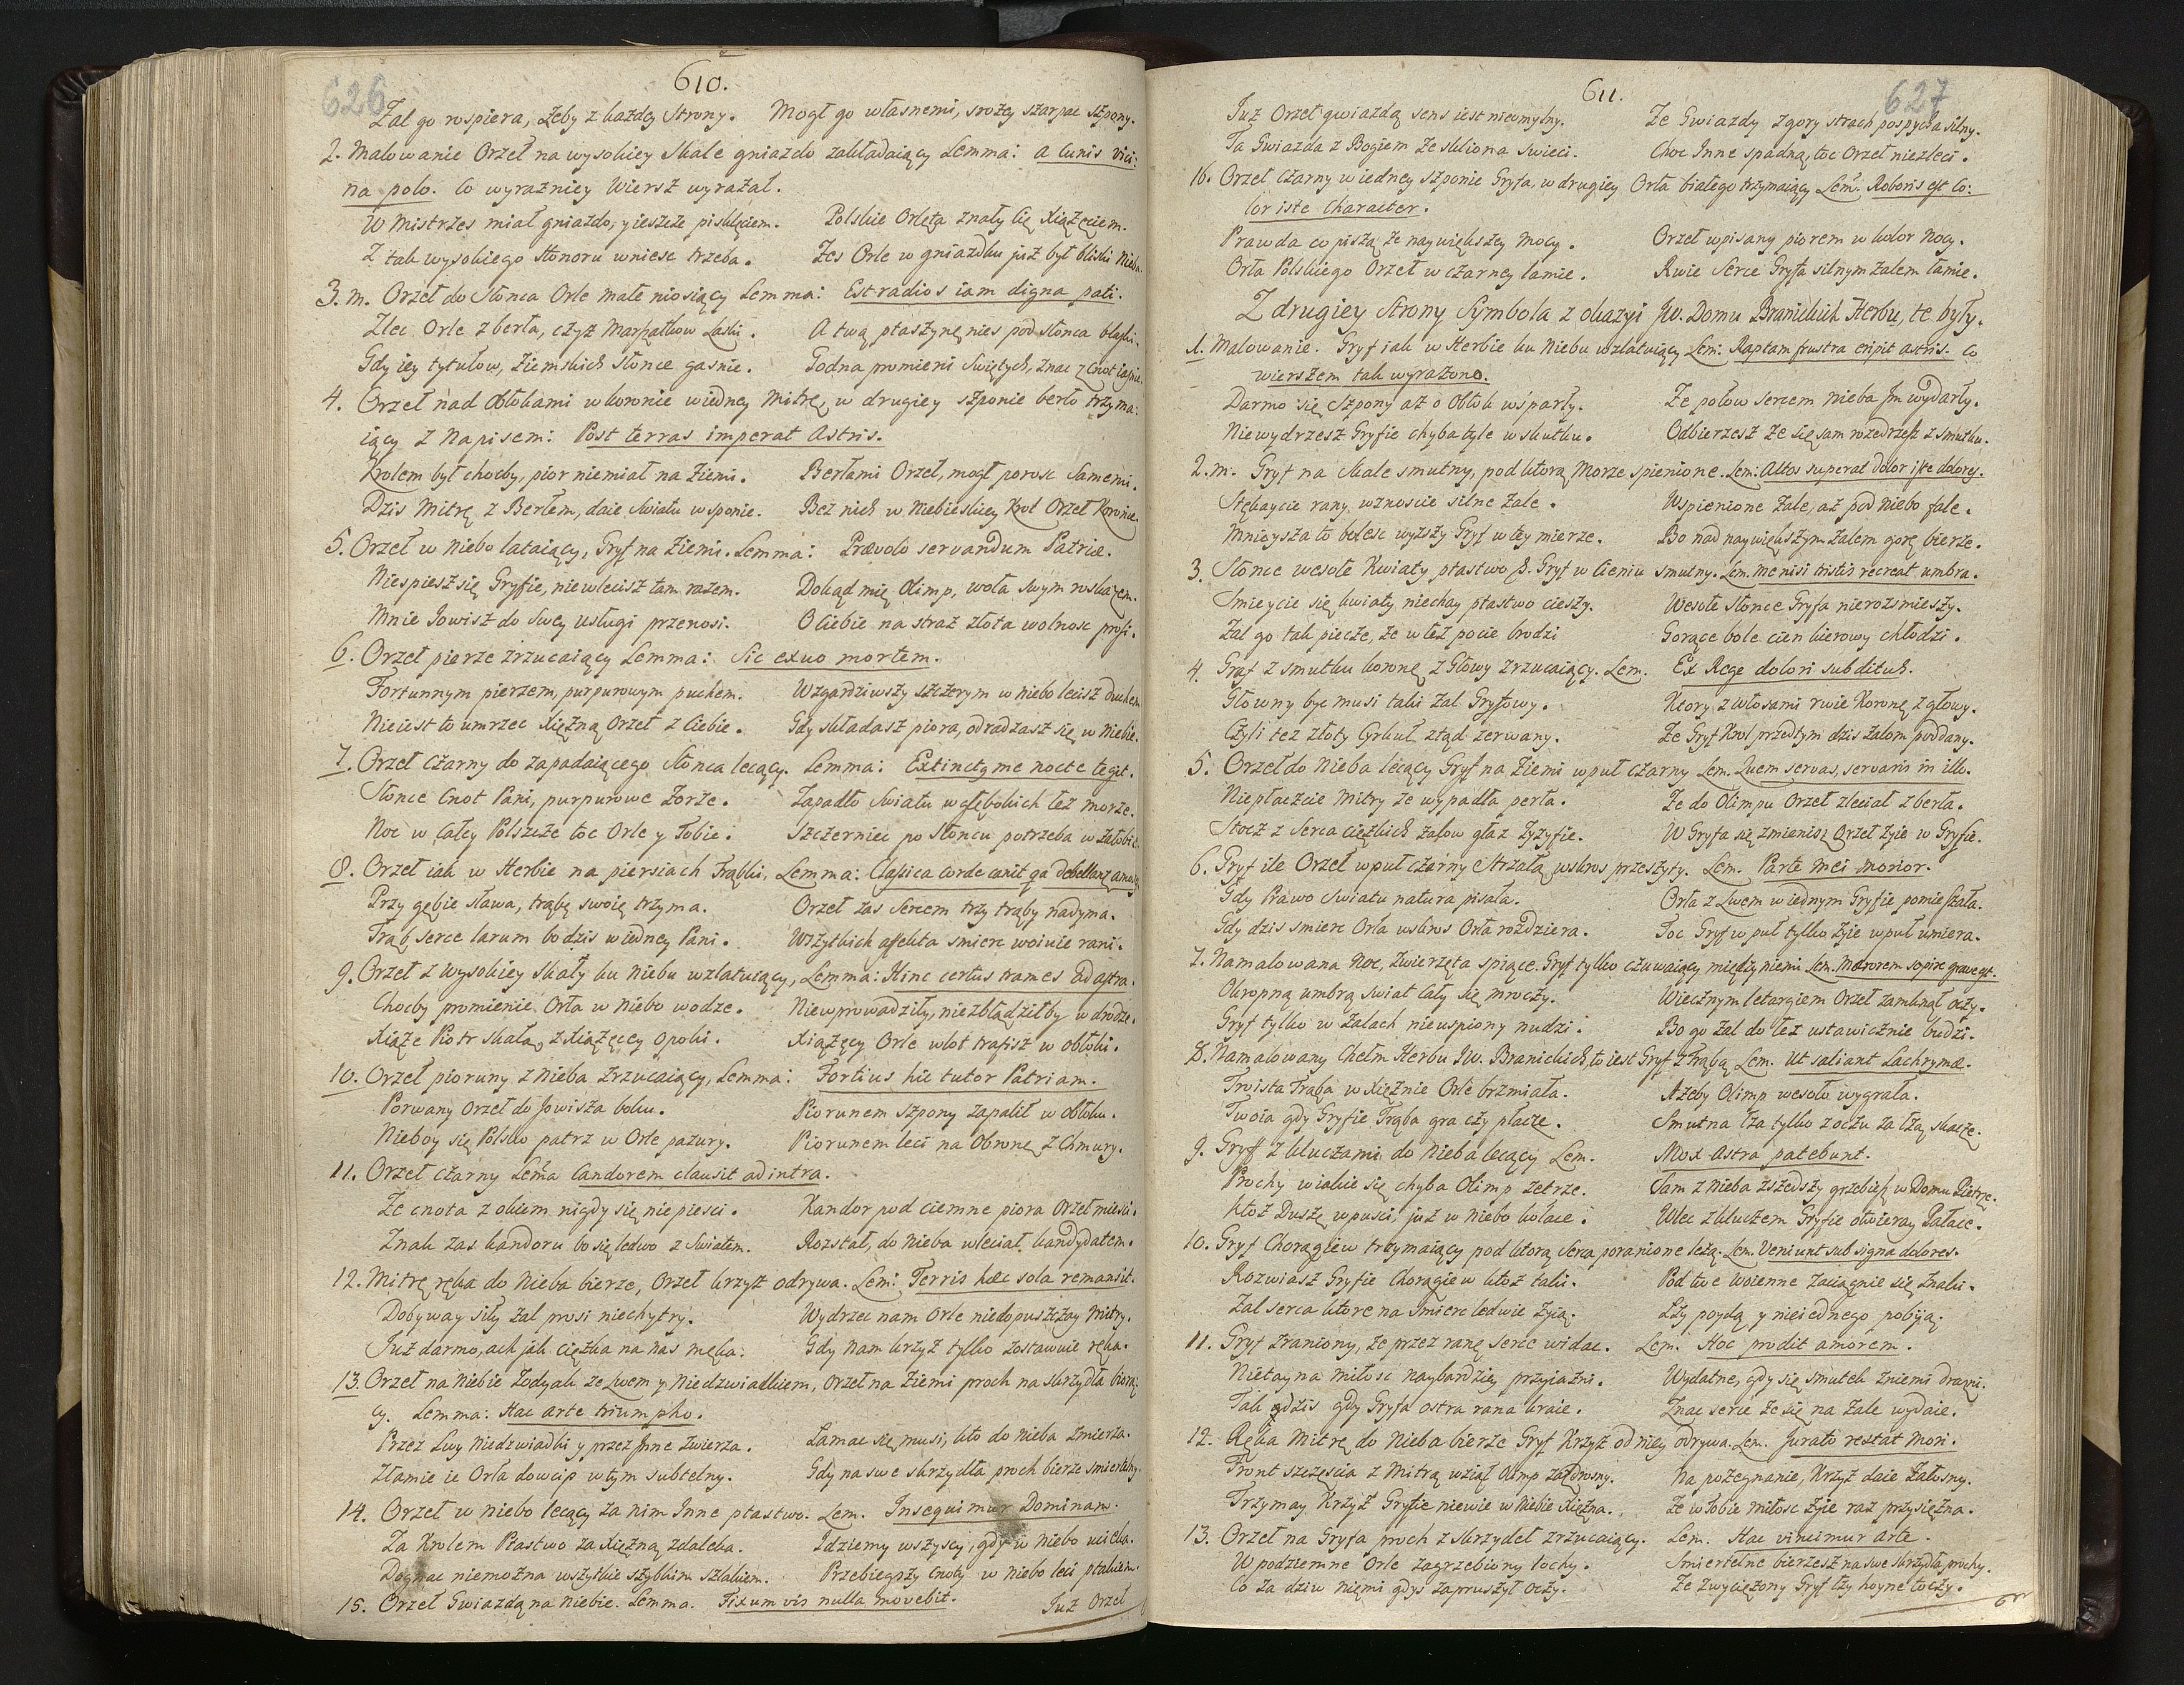 626
610.
Żal go rospiera, Żeby z każdey Strony. Mogł go własnemi, srożey szarpac szpony.
2. Malowanie Orzeł na wysokiey Skale gniazdo zakładaiący Lemma: a Cunis vici:
na polo. Co wyrazniey Wiersz wyrażał.
W Mistrzes miał gniazdo, y ieszcze pisklęciem. Polskie Orlęta znały Cię Xiążęciem.
Z tak wysokiego Honoru wniesc trzeba. Żes Orle w gniazdku już był bliski Nieba.
3. m. Orzeł do Słonca Orle małe niosiący Lemma: Est radios iam digna pati.
Zlec Orle z berła, czyż Marszałkow Laski. A twą ptaszynę nies pod słonca blaski.
Gdy iey tytułow, Ziemskich Słonce gasnie. Godna promieni Swiętych, znac z Cnot iasnie.
4. Orzeł nad Obłokami w koronie wiedney Mitrę, w drugiey szponie berło trzyma:
iący z Napisem: Post terras imperat Astris.
Krolem był chocby, pior niemiał na Ziemi. Berłami Orzeł, mogł porosc Samemi.
Dzis Mitrę z Berłem, daie Swiatu w sponie. Bez nich w Niebieskiey Krol Orzeł Koronie.
5. Orzeł w Niebo lataiący, Gryf na Ziemi. Lemma: Prævolo servandum Patriæ.
Niespiesz się Gryfie, niewlecisz tam razem. Dokąd mię Olimp, woła swym roskazem.
Mnie Jowisz do Swey usługi przenosi. O Ciebie na straż złota wolnosc prosi.
6. Orzeł pierze zrzucaiący Lemma: Sic exuo mortem.
Fortunnym pierzem, purpurowym puchem. Wzgardziwszy szczerym w niebo lecisz duchem
Nieiest to umrzec Xiężną Orzeł z Ciebie. Gdy składasz piora, odradzasz się w Niebie.
7. Orzeł Czarny do zapadaiącego Słonca lecący. Lemma: Extincta me nocte tegit.
Słonce Cnot Pani, purpurowe Zorze. Zapadło Swiatu w głębokich łez morze.
Noc w Całey Polszcze toc Orle y Tobie. Szczerniec po Słoncu potrzeba w żałobie.
8. Orzeł iak w Herbie na piersiach Trąbki, Lemma: Classica corde canit
Przy gębie sława, trąbę swoię trzyma. Orzeł zas Sercem trzy trąby nadyma.
Trąb, Serce larum bo dzis wiedney Pani. Wszytkich affekta smierc woiuie rani.
9. Orzeł z wysokiey skały ku Niebu wzlatuiący, Lemma: Hinc certus trames ad astra.
Chocby promienie Orła w Niebo wodze. Niewprowadziły, niezbłądziłby w drodze.
Xiąże Piotr skałą, z Xiążęcey opoki. Xiążęcy Orle wlot trafisz w obłoki.
10. Orzeł pioruny z Nieba zrzucaiący, Lemma: Fortius hic tutor Patriam.
Porwany Orzeł do Jowisza boku. Piorunem szpony zapalił w obłoku.
Nieboy się Polsko patrz w Orle pazury. Piorunem leci na Obronę z Chmury.
11. Orzeł czarny Lema Candorem clausit ad intra.
Ze cnota z okiem nigdy się niepiesci. Kandor pod ciemne piora Orzeł miesci.
Znak zas kandoru bo się ledwo z Swiatem. Rozstał, do Nieba wleciał kandydatem.
12. Mitrę ręka do Nieba bierze, Orzeł krzyż odrywa. Lem: Terris hæc sola remansit.
Dobyway siły żal prosi niechytry. Wydrzec nam Orle niedopuszczay Mitry.
Już darmo, ach jak ciężka na nas męka: Gdy nam krzyż tylko zostawuie ręka.
13. Orzeł na Niebie Zodyak ze Lwem y Niedzwiadkiem, Orzeł na Ziemi proch na skrzydła biorą:
cy. Lemma: Hac arte triumpho.
Przez Lwy Niedzwiadki y przez Jnne Zwierza. Łamac się musi, kto do Nieba zmierza.
Złamie ie Orła dowcip w tym subtelny. Gdy na swe skrzydła proch bierze smiertelny.
14. Orzeł w niebo lecący za nim Inne ptastwo. Lem. Insequimur Dominam.
Za Krolem Ptastwo za Xiężną zdaleka. Idziemy wszyscy, gdy w niebo ucieka.
Dognac niemożna wszytkie szybkim szlakiem. Przebiegszy Cnoty w niebo leci ptakiem.
15. Orzeł Gwiazdą na Niebie. Lemma. Fixum vis nulla movebit.
Już Orzeł
611.
627
Już Orzeł gwiazdą sens iest nieomylny. Że Gwiazdy z gory strach pospycha silny.
Ta Gwiazda z Bogiem że sklione Swieci. Choc Inne spadną, toc Orzeł niezleci.
16. Orzeł Czarny wiedney szponie Gryfa, w drugiey Orła białego trzymaiący Lem. Roboris est Co:
lor iste Character.
Prawda co piszą że naywiększey mocy. Orzeł wpisany piorem w kolor Nocy.
Orła Polskiego Orzeł w czarney łamie. Rwie Serce Gryfa silnym żalem łamie.
Z drugiey Strony Symbola z okazyi JW. Domu Branickich Herbu, te były.
1. Malowanie. Gryf iak w Herbie ku Niebu wzlatuiący Lem: Raptam frustra eripit astris. Co
wierszem tak wyrażono.
Darmo się Szpony aż o Obłok wsparły. Że połow sercem nieba Jm wydarły.
Niewydrzesz Gryfie chyba tyle wskutku. Odbierzesz że się sam rozedrzesz z smutku.
2. m. Gryf na Skale smutny, pod ktorą Morze spienione. Lem: Altos superat dolor iste dolores.
Stękaycie rany, wznoscie silne żale. Wspienione żale, aż pod niebo fale.
Mnieysza to bolesc wyższy Gryf w tey mierze. Bo nad naywiększym żalem gorę bierze.
3. Słonce wesołe Kwiaty ptastwo &. Gryf w Cieniu smutny. Lem. Me nisi tristis recreat umbra.
Smieycie się kwiaty, niechay ptastwo cieszy. Wesołe Słonce Gryfa nierozsmieszy.
Żal go tak piecze, że w łez pocie brodzi Gorące bole cien kierowy chłodzi.
4. Gryf z smutku koronę z Głowy zrzucaiący. Lem. Ex Rege dolori subditus.
Głowny byc musi taki Żal Gryfowy. Ktory z włosami rwie Koronę z głowy.
Czyli też złoty Cyrkuł ztąd zerwany. Że Gryf Krol przedtym dzis żalom poddany.
5. Orzeł do Nieba lecący Gryf na Ziemi wpuł czarny Lem. Quem servas, servaris in illo.
Niepłaczcie Mitry że wypadła perła. Że do Olimpu Orzeł zleciał z berła.
Stocz z Serca ciężkich żalow głaz Zyzyfie. W Gryfa się zmienisz Orzeł żyie w Gryfie.
6. Gryf ile Orzeł wpuł czarny Strzałą wskros przeszyty. Lem. Parte mei morior.
Gdy Prawo Swiatu natura pisała. Orła z Lwem wiednym Gryfie pomieszała.
Gdy dzis smierc Orła wskros Orła rozdziera. Toc Gryf wpuł tylko żyie wpuł umiera.
7. Namalowana Noc, Zwierzęta spiące. Gryf tylko czuwaiący między niemi Lem. Mærorem sopire grave est.
Okropną umbrą swiat Cały się mroczy. Wiecznym letargiem Orzeł zamknął oczy.
Gryf tylko w Żalach nieuspiony nudzi. Bo go żal do łez ustawicznie budzi.
8. Namalowany Chełm Herbu JW. Branickich, to iest Gryf z Trąbą Lem. Ut saliant Lachrymæ.
Troista Trąba w Xiężnie Orle brzmiała. Ażeby Olimp wesoło wygrała.
Twoia gdy Gryfie Trąba gra czy płacze. Smutna łza tylko z oczu za łzą skacze.
9. Gryff z kluczami do Nieba lecący Lem. Mox Astra patebunt.
Prochy wiakie się chyba Olimp zetrze. Sam z nieba zszedszy grzebiesz w Domu Pietrze.
Ktoż Duszę wpusci, już w niebo kołace. Wlec z kluczem Gryfie otwieray Pałace.
10. Gryf Chorągiew trzymaiący pod ktorą Serca poranione leżą. Lem. Veniunt sub signa dolores.
Rozwiasz Gryfie Chorągiew ktoż taki. Pod twe woienne zaciągnie się znaki.
Żal serca ktore na smierc ledwie żyią. Łzy poydą y nieiednego pobiją.
11. Gryf zraniony, że przez ranę Serce widac. Lem. Hoc prodit amorem.
Nietayna miłosc naybardziey przyiazni. Wydatne, gdy się smutek zniemi drażni.
Tak gdzis gdy Gryfa ostra rana kraie. Znac serce że się na żale wydaie.
12. Ręka Mitrę do Nieba bierze Gryf Krzyż od niey odrywa. Lem. Jurato restat mori.
Front szczęscia z Mitrą wziął Olimp zazdrosny. Na pożegnanie, Krzyż daie Żałosny.
Trzymay Krzyż Gryfie niewie w Niebie Xiężna. Że w Tobie miłosc żyie raz przysiężna.
13. Orzeł na Gryfa proch z skrzydeł zrzucaiący. Lem. Hac vincimur Arte.
W podziemne Orle zagrzebiony lochy. Smiertelne bierzesz na swe skrzydła prochy.
Co za dziw niemi gdys zapruszył oczy. Że zwyciężony Gryf łzy hoyne toczy.